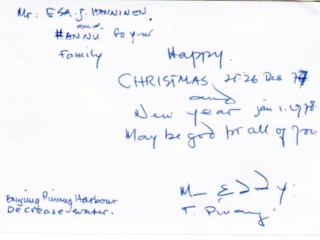 Mr: ESA. J. HANNINEN
and
HANNU to your
Family
Happy.
CHRISTMAS 25-26 Dec 77
and
New year jan 1.1978.
May be god for all of you
M_ EDDY.
T. Pinang.
Tanjung Pinang Harbour
Decrease-water.